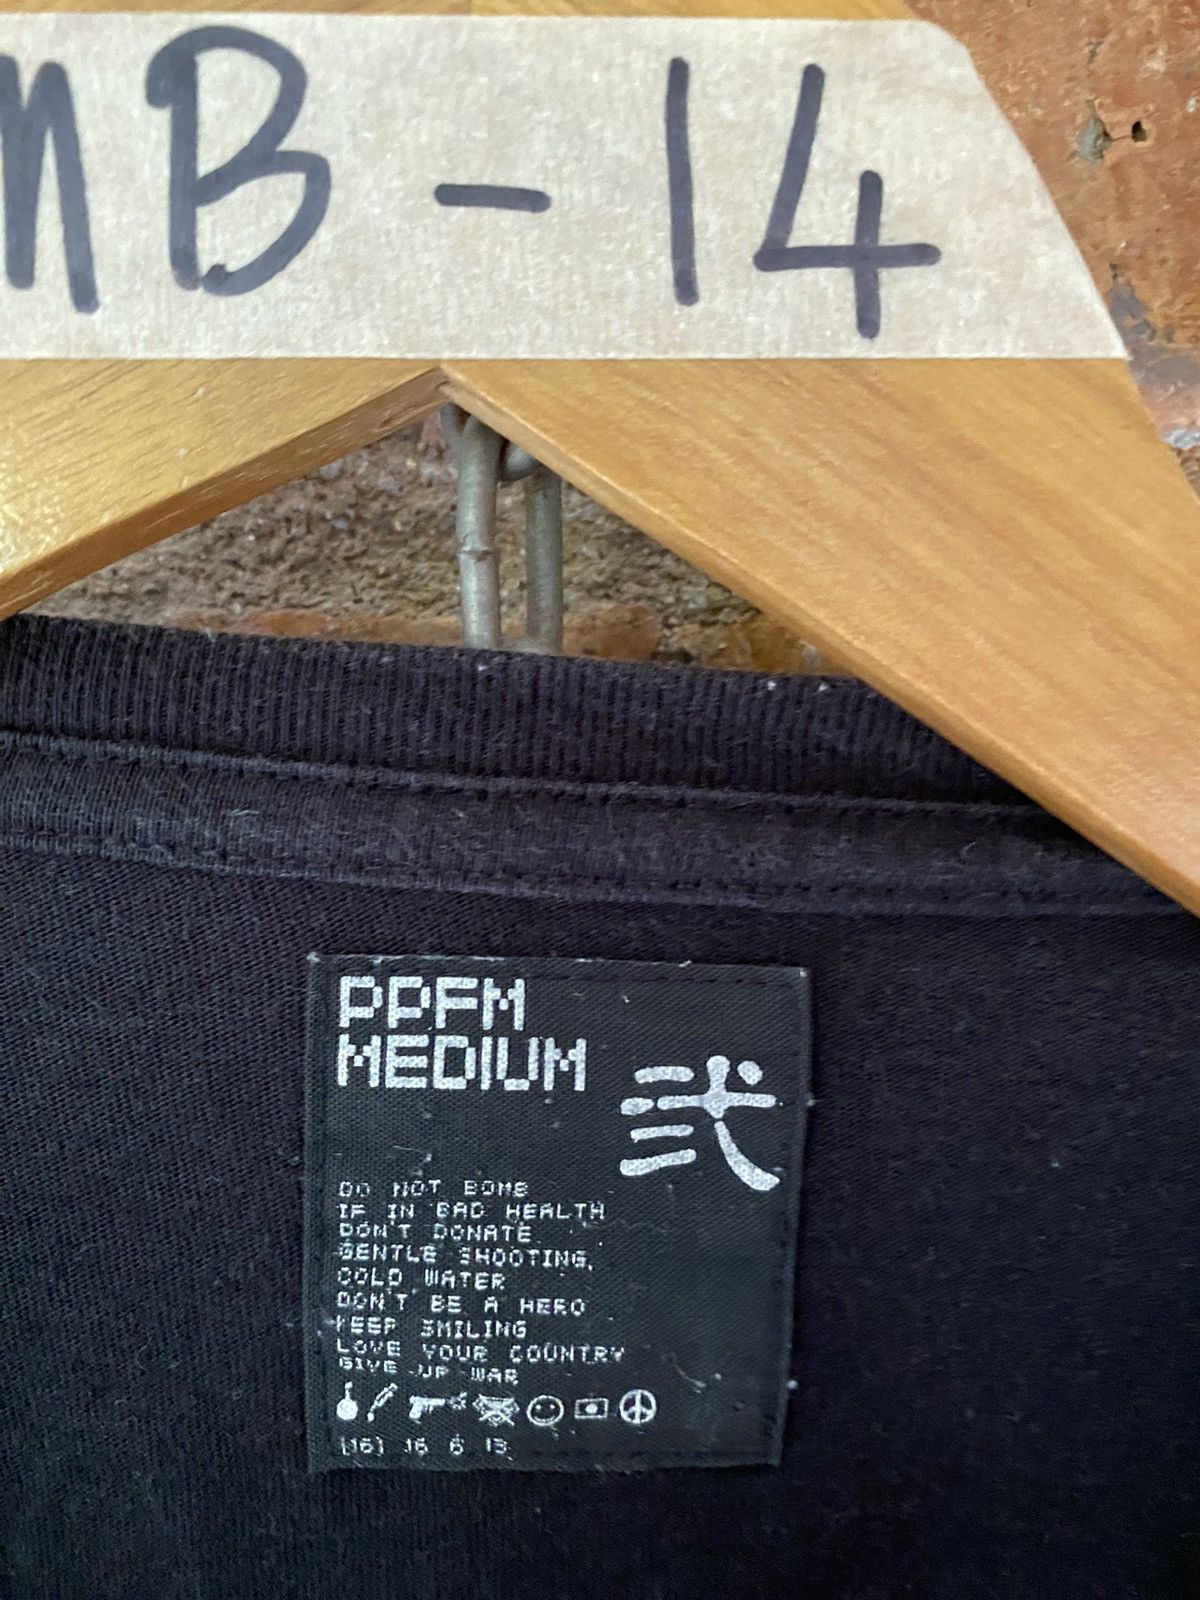 MB-14
PPFM
MEDIUM
弐
DO NOT BOMB
IF IN BAD HEALTH
DON'T DONATE
GENTLE SHOOTING,
COLD WATER
DON'T BE A HERO
KEEP SMILING
LOVE YOUR COUNTRY
GIVE UP WAR
[16] 16 6 13